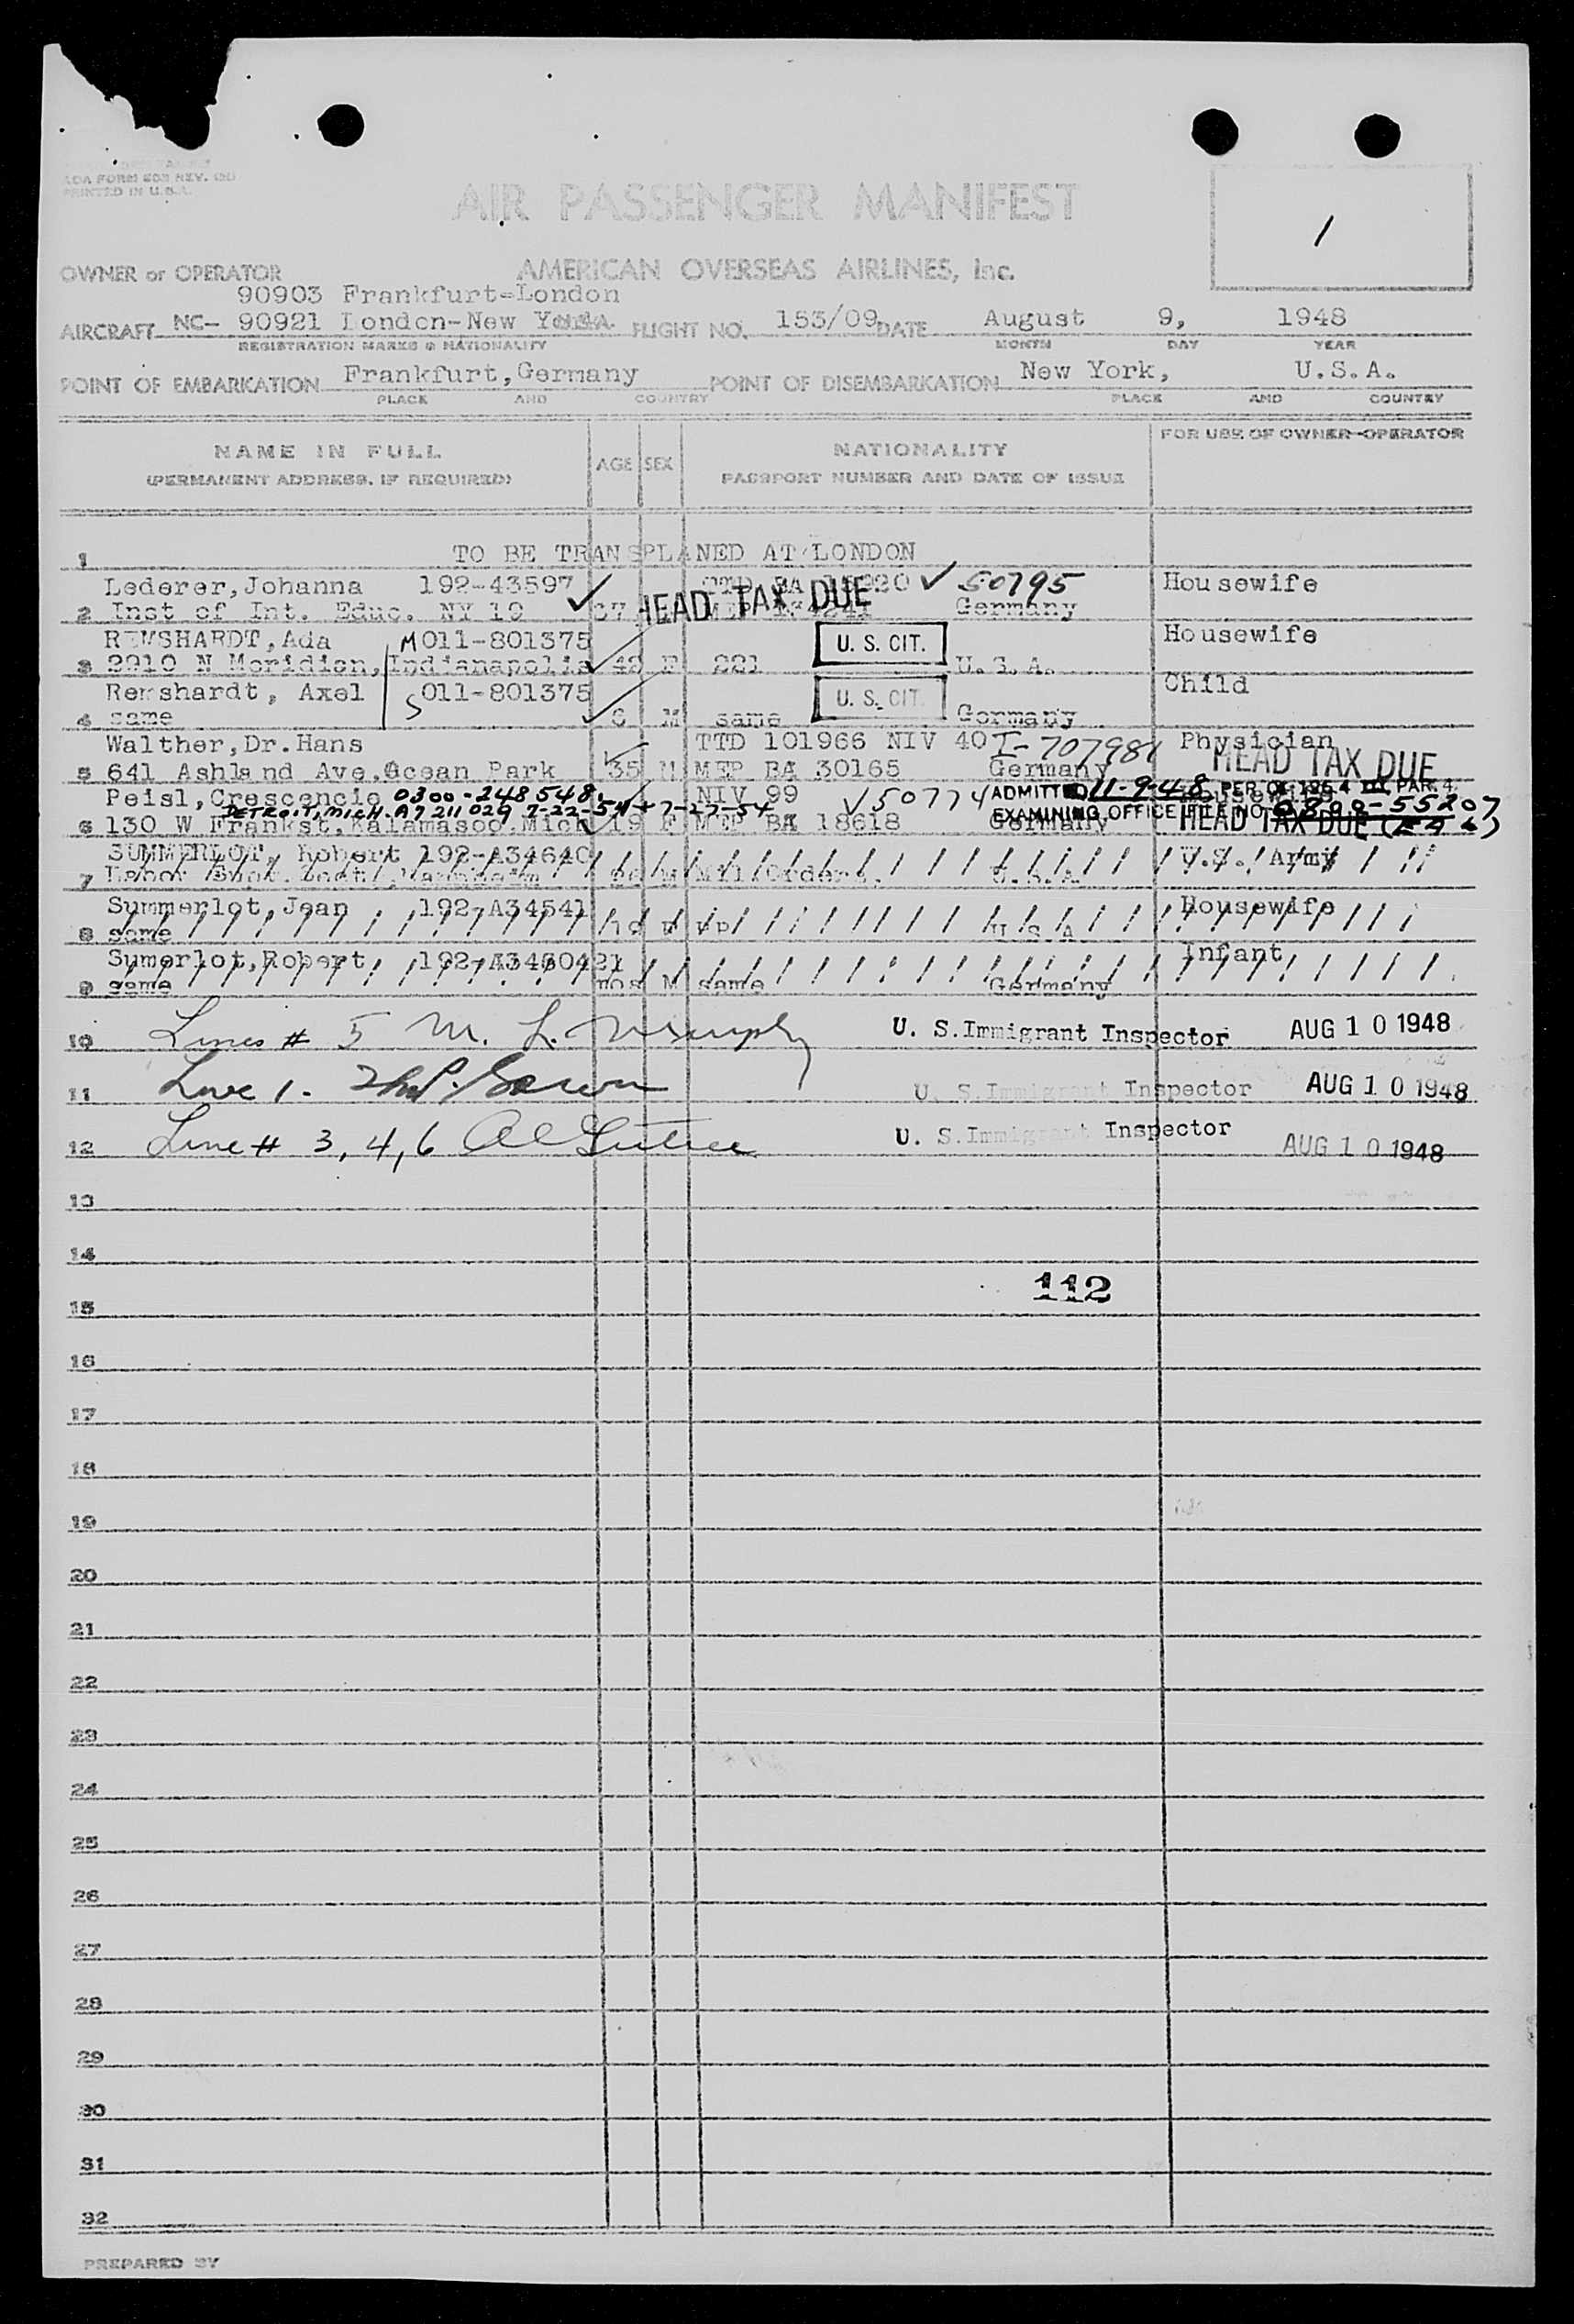 AOA FORM 403 REV.
PRINTED IN U.S.A.
AIR PASSENGER MANIFEST
1
OWNER or OPERATOR AMERICAN OVERSEAS AIRLINES, Inc.
90903 Frankfurt-London
AIRCRAFT NC- 90921 London-New York FLIGHT NO. 153/09 DATE August 9, 1948
REGISTRATION MARKS & NATIONALITY MONTH DAY YEAR
POINT OF EMBARKATION Frankfurt, Germany POINT OF DISEMBARKATION New York, U.S.A.
PLACE AND COUNTRY PLACE AND COUNTRY
NAME IN FULL AGE SEX NATIONALITY FOR USE OF OWNER-OPERATOR
(PERMANENT ADDRESS, IF REQUIRED) PASSPORT NUMBER AND DATE OF ISSUE
1 TO BE TRANSPLANED AT LONDON
Lederer,Johanna 192-43597 ✓ ✓ 50795 Housewife
2 Inst of Int. Educ. NY 19 HEAD TAX DUE Germany
REMSHARDT,Ada M 011-801375 U. S. CIT. Housewife
3 2910 N Meridion, Indianapolis 42 F 221 U.S.A.
Remshardt, Axel S 011-801375 U. S. CIT. Child
4 same M same Germany
Walther,Dr.Hans TTD 101966 NIV 40 I-707981 Physician
5 641 Ashland Ave.Ocean Park 35 M MEP BA 30165 Germany HEAD TAX DUE
Peisl,Crescencia 0300-248548 NIV 99 ✓50774 ADMITTED 11-9-48 PER PAR. 4 Housewife
DETROIT, MICH. A7 211 029 7-22-54 + 7-27-54
6 130 W Frankst,Kalamasoo,Mich 19 F MEP BA 18618 Germany EXAMINING OFFICE FILE NO HEAD TAX DUE
SUMMERLOT, Robert 192-A34640 U.S. Army
7 M Mil.Orders. U.S.A.
Summerlot,Jean 192-A34541 Housewife
8 same F U S A
Sumerlot,Robert Infant
9 same mos M same Germany
10 Lines # 5 M. L. Murphy U. S. Immigrant Inspector AUG 10 1948
11 Line 1. U. S. Immigrant Inspector AUG 10 1948
12 Line # 3, 4, 6 U. S. Immigrant Inspector AUG 10 1948
13
14
112
15
16
17
18
19
20
21
22
23
24
25
26
27
28
29
30
31
32
PREPARED BY